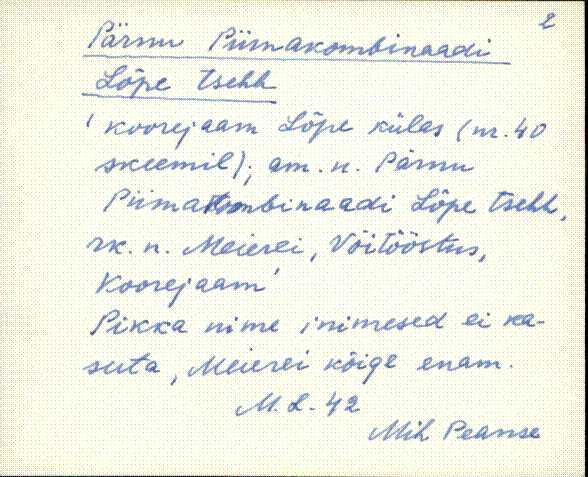 2
Pärnu Piimakombinaadi
Lõpe tsehh
'koorejaam Lõpe külas (nr. 40
skeemil); am. n. Pärnu
Piimakombinaadi Lõpe tsehh,
rk. n. Meierei, Võitööstus,
Koorejaam'
Pikka nime inimesed ei ka-
suta, Meierei kõige enam.
M. L. 42
Mih Peanse